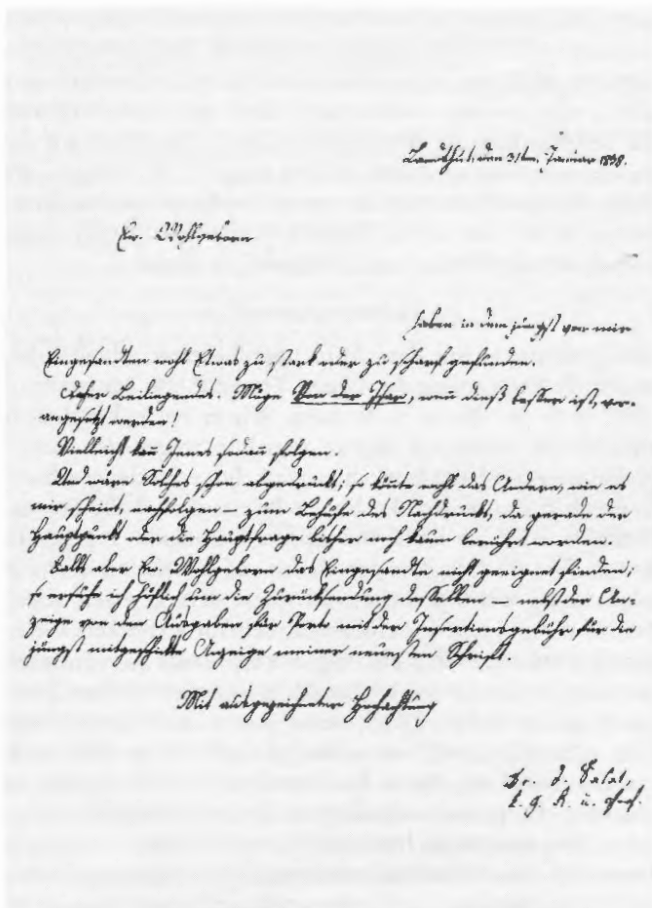 Landshut, den 31ten Januar 1838.
Ew. Wohlgeborn
haben in dem jüngst von mir
Eingesandten wohl Etwas zu stark oder zu scharf gefunden.
Daher Beiliegendes. Möge Von der Isar, wenn dieß besser ist, vor-
angesetzt werden!
Vielleicht kann Jenes sodann folgen.
Und wäre Solches schon abgedruckt; so könnte wohl das Andere, wie es
mir scheint, nachfolgen – zum Behufe des Nachdrucks, da gerade der
Hauptpunkt oder die Hauptfrage bisher noch kaum berührt worden.
Falls aber Ew. Wohlgeborn das Eingesandte nicht geeignet finden;
so ersuche ich höflich um die Zurücksendung desselben – nebst der An-
zeige von den Ausgaben für Porto mit der Insertionsgebühr für die
jüngst mitgeschickte Anzeige meiner neuesten Schrift.
Mit ausgezeichneter Hochachtung
Dr. J. Salat,
k. g. R. u. Prof.